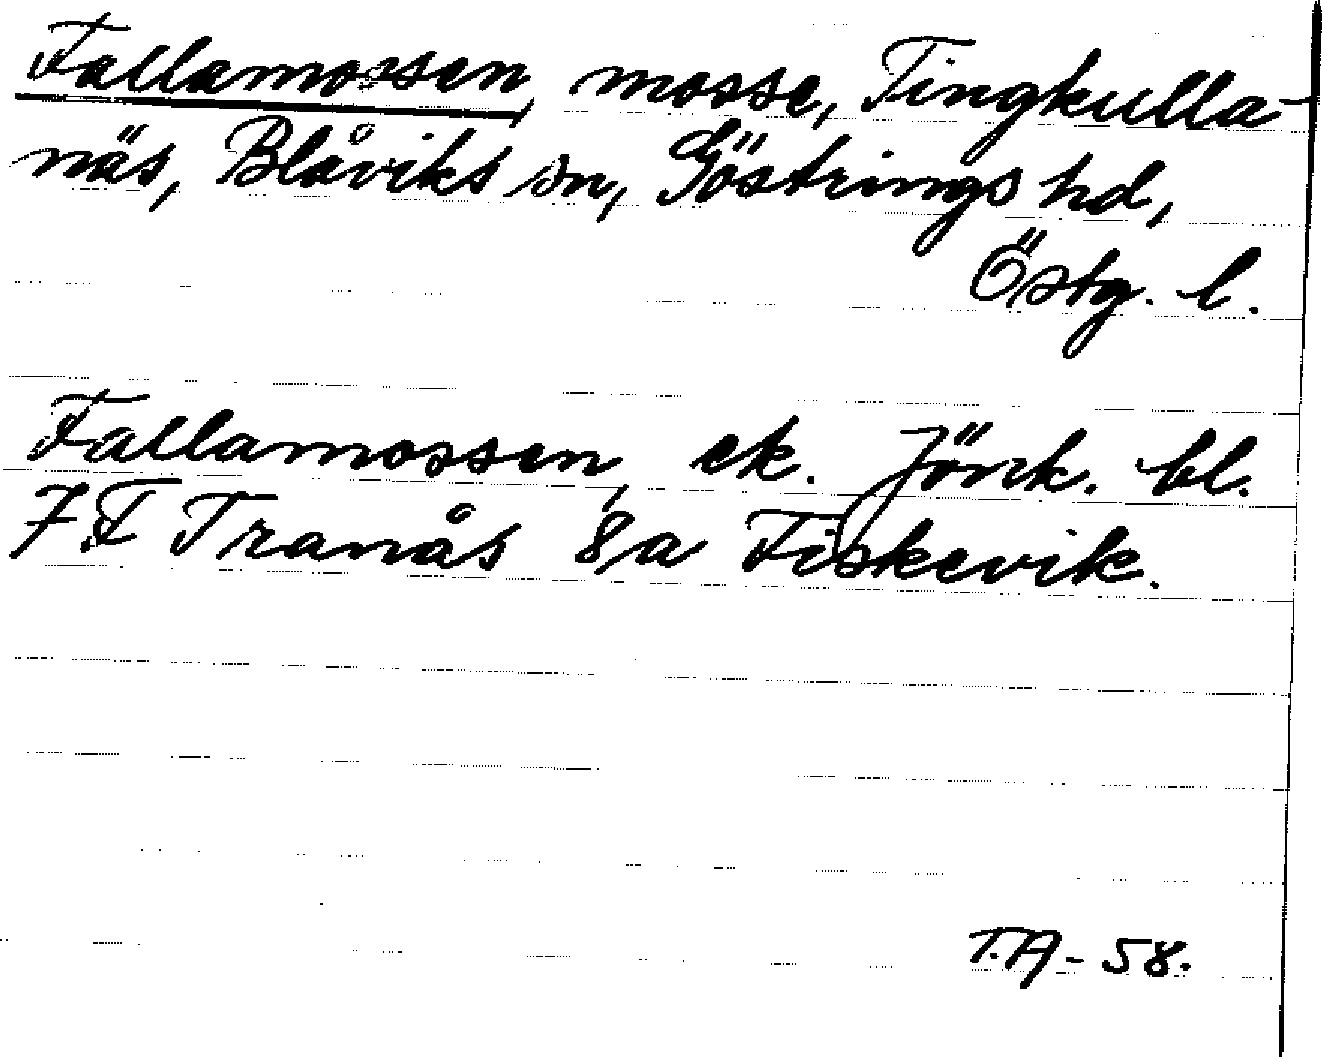 Fallamossen, mosse, Tingkulla-
näs, Blåviks sn, Göstrings hd,
Östg. l.
Fallamossen, ek. Jönk. bl.
7 F Tranås 8a Fiskevik.
T.A - 58.